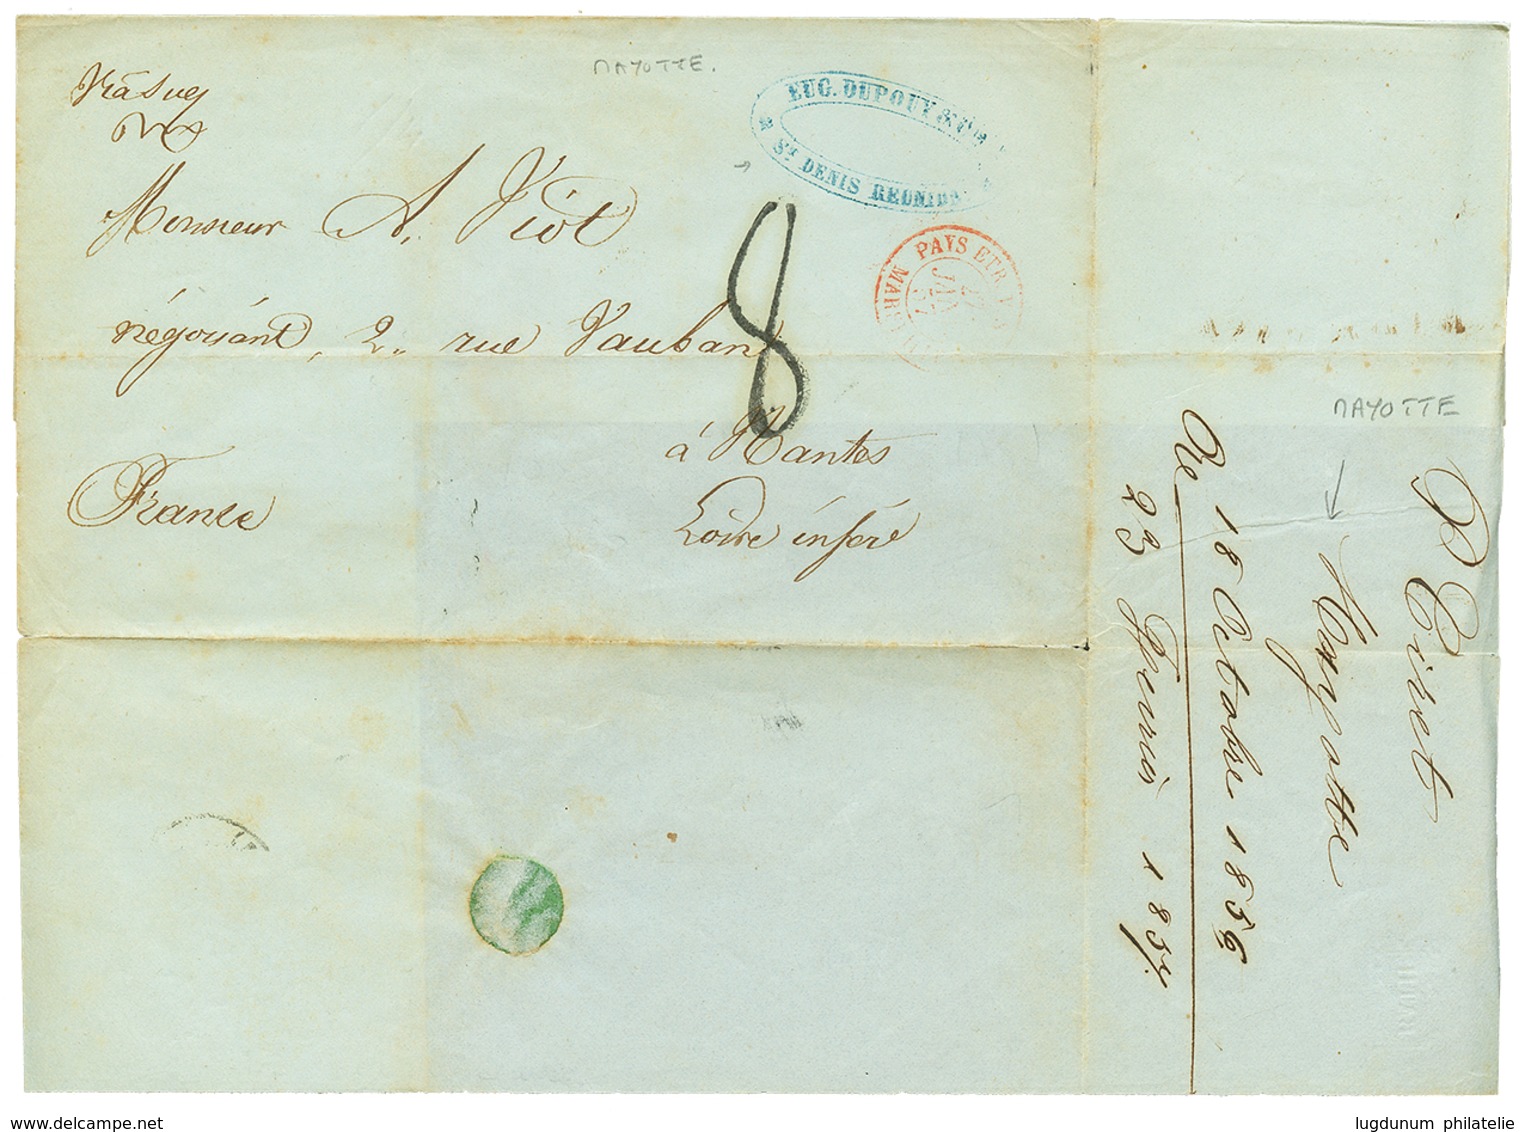 MAYOTTE.
Viâ Suez
EUG. DUPOUY & Cie
St DENIS REUNION
Monsieur A. Viot
négociant, 2.. rue Vauban
8
à Nantes
Loire inféré
France
PAYS ETR.
MAR
JAN
57
MAYOTTE
Mayotte
Re 18 Octobre 1856
23 Janvier 1857
www.delcampe.net
lugdunum philatelie